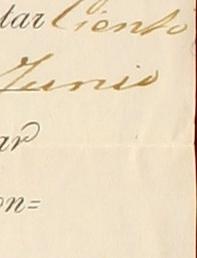 tar Ciento
Junio
ar
on=